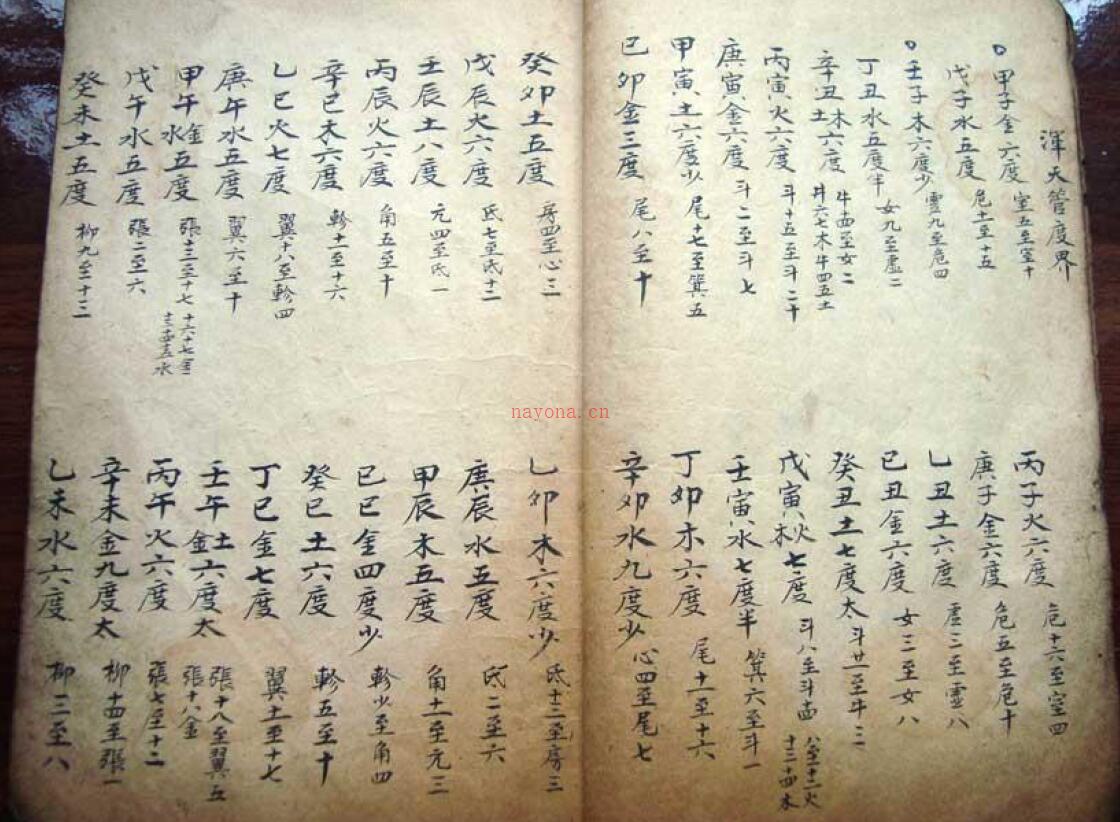 渾天管度界
甲子金六度 室五至室十
丙子火六度 危十六至室四
戊子水五度 危十一至十五
庚子金六度 危五至危十
壬子木六度少 虛九至危四
乙丑土六度 虛三至虛八
丁丑水五度半 女九至虛二
己丑金六度 女三至女八
辛丑木土六度 牛四至女二 斗六七木牛四五土
癸丑土七度太 斗廿一至牛三
丙寅火六度 斗十五至斗二十
戊寅火木七度 斗八至斗十四 八至十二火十三十四木
庚寅金六度 斗二至斗七
壬寅水七度半 箕六至斗一
甲寅土六度少 尾十七至箕五
丁卯木六度 尾十一至十六
己卯金三度 尾八至十
辛卯水九度少 心四至尾七
癸卯土五度 房四至心三
乙卯木六度少 氐十三至房三
戊辰火六度 氐七至氐十二
庚辰水五度 氐二至六
壬辰土八度 亢四至氐一
甲辰木五度 角十一至亢三
丙辰火六度 角五至十
己巳金四度少 軫少至角四
辛巳木六度 軫十一至十六
癸巳土六度 軫五至十
乙巳火七度 翼十八至軫四
丁巳金七度 翼十一至十七
庚午水五度 翼六至十
壬午土金六度太 張十八至翼五 張十八金
甲午金水五度 張十三至十七 十六十七金 十三十四十五水
丙午火六度 張七至十二
戊午水五度 張二至六
辛未金九度太 柳十四至張一
癸未土五度 柳九至十三
乙未水六度 柳三至八
nayona.cn